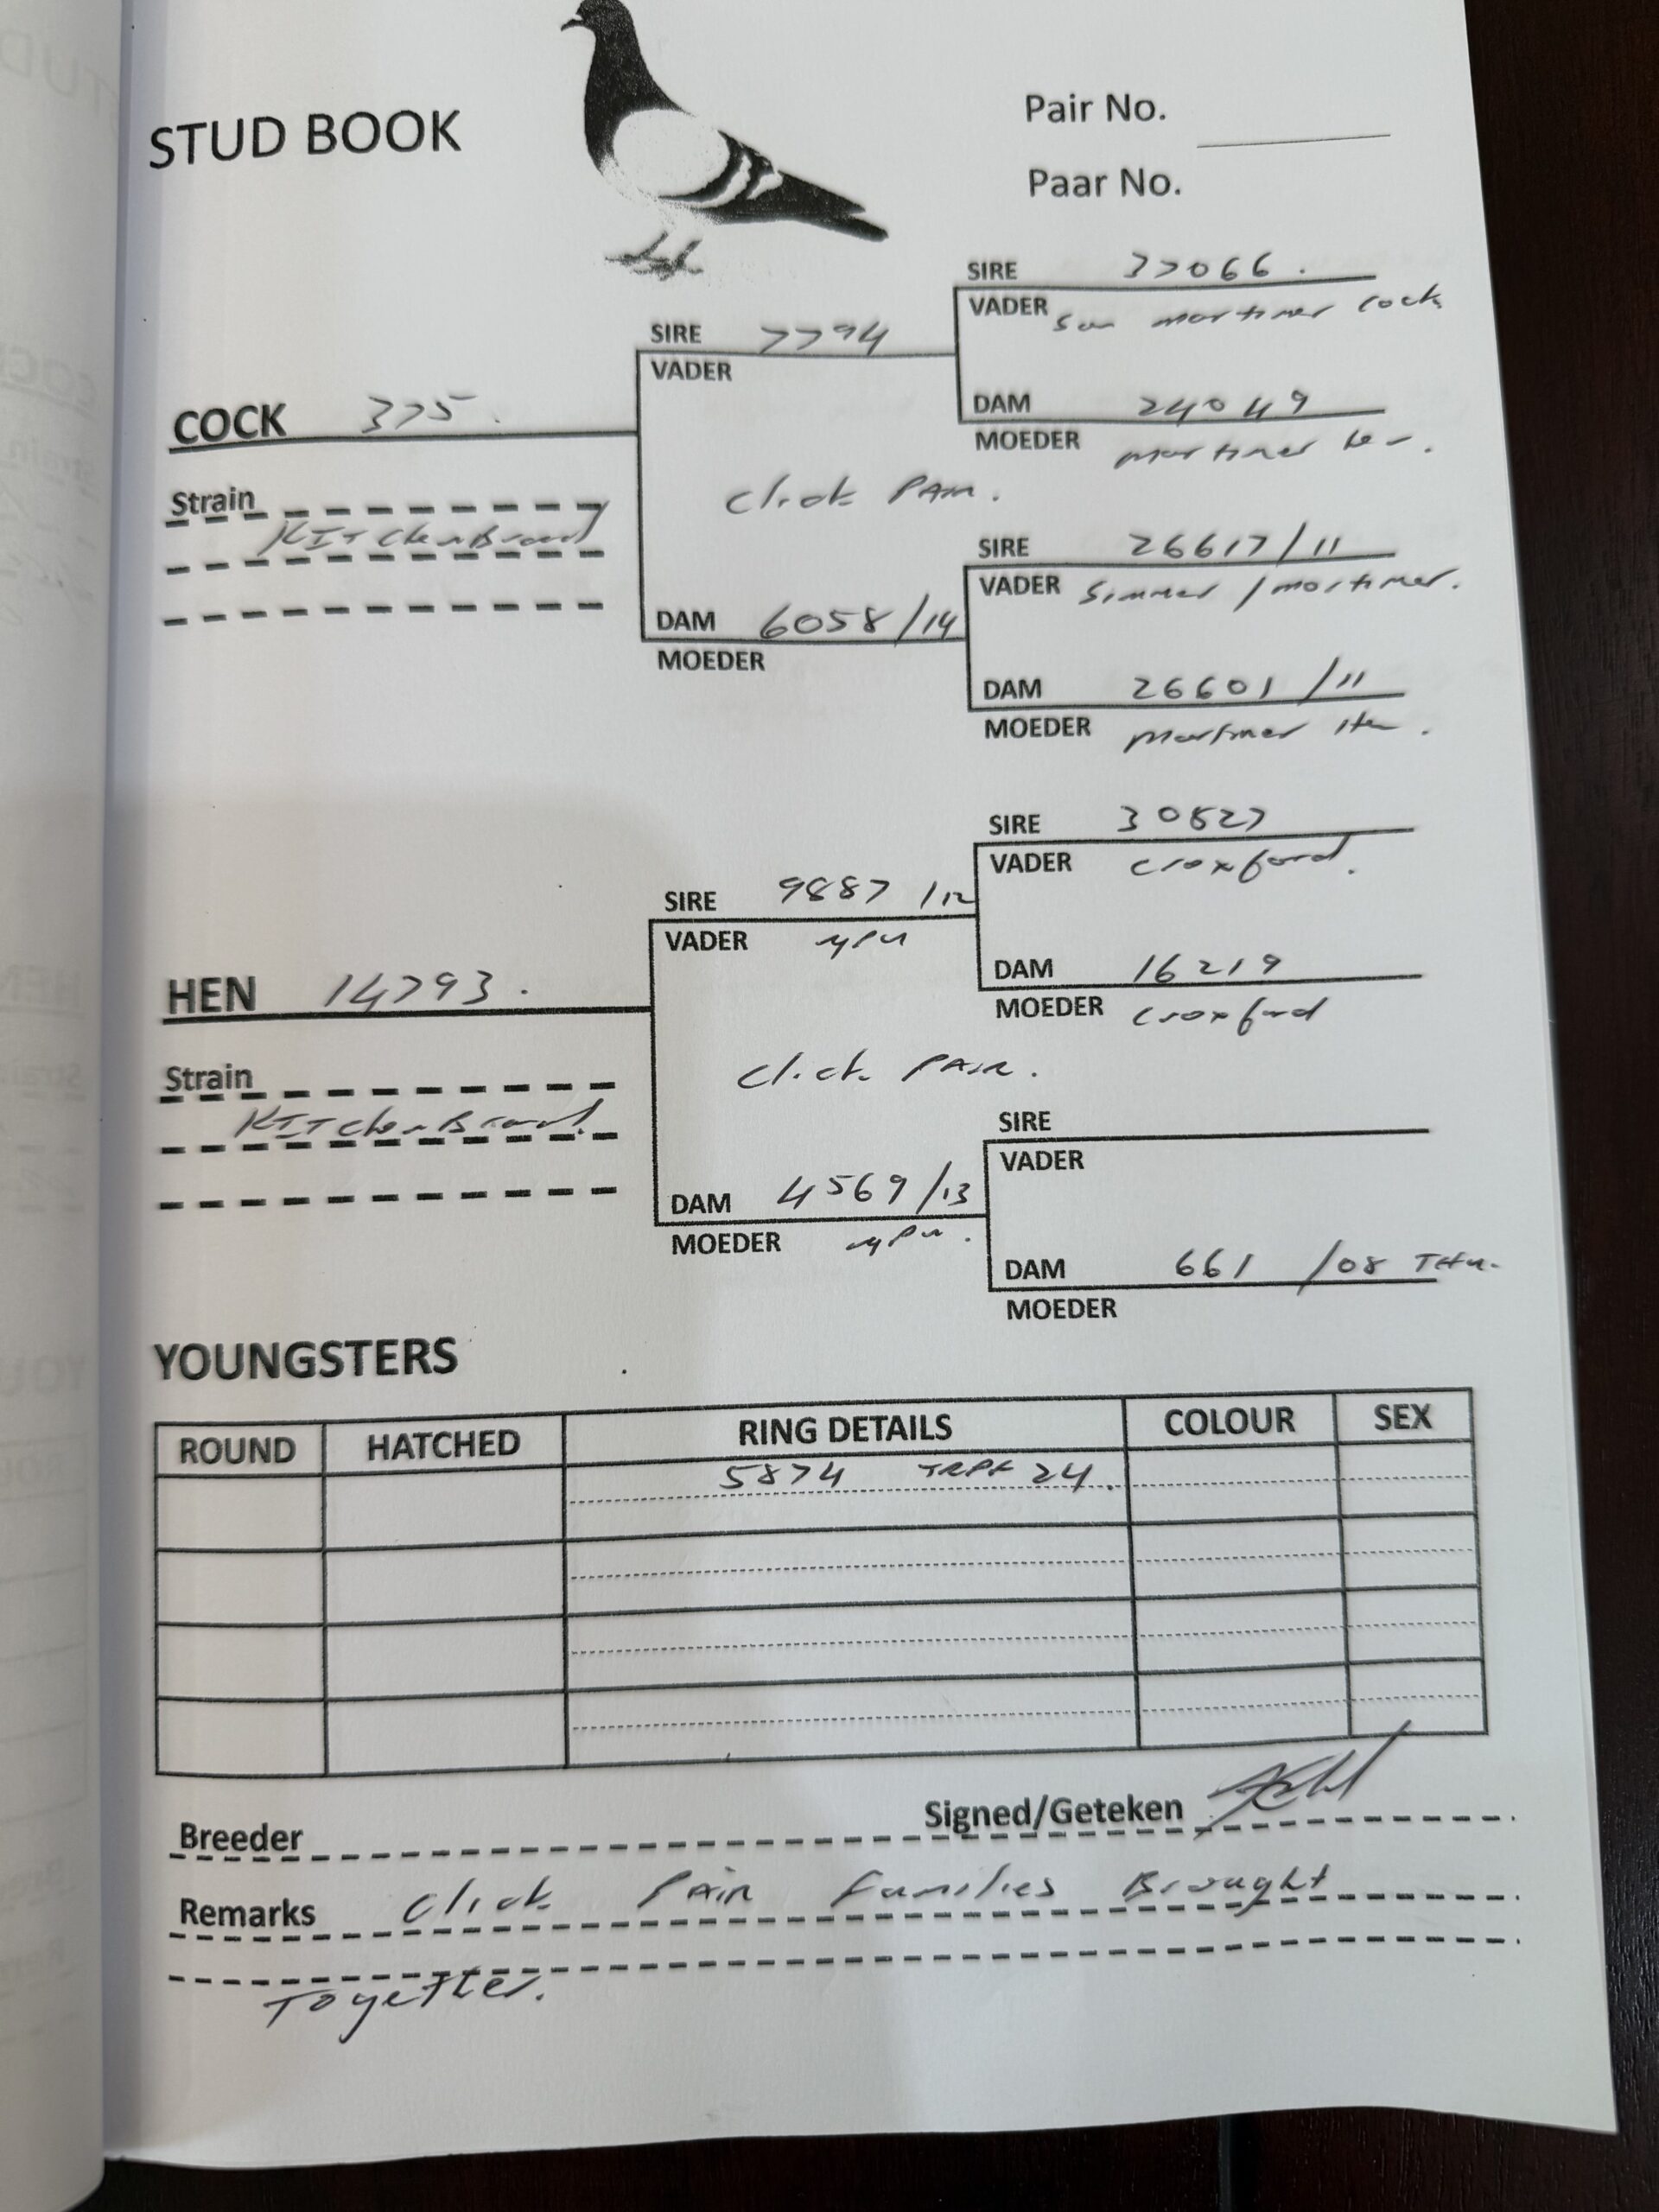 STUD BOOK
Pair No.
Paar No.
SIRE 37066 .
VADER Son mortimer cock
SIRE 7794
VADER
DAM 24049
MOEDER mortimer
COCK 375 .
Click PAIR .
Strain
KITchenBrand
SIRE 26617/11
VADER Simmer / mortimer.
DAM 6058/14
MOEDER
DAM 26601 /11
MOEDER mortimer Hen .
SIRE 30827
VADER Croxford .
SIRE 9887 /12
VADER
DAM 16219
MOEDER Croxford
HEN 14793 .
Click PAIR .
Strain
KITchenBrand
SIRE
VADER
DAM 4569/13
MOEDER
DAM 661 /08
MOEDER
YOUNGSTERS
ROUND HATCHED RING DETAILS COLOUR SEX
5874 TRPF 24 .
Signed/Geteken
Breeder
Remarks Click Pair families Brought
Together.